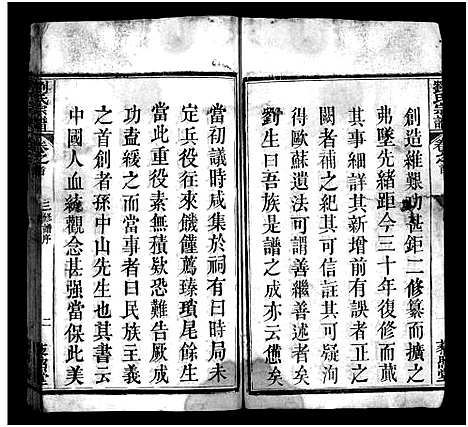 創造維艱功甚鉅二修纂而擴之
弗墜先緒距今三十年復修而葳
其事細詳其新增前有誤者正之
闕者補之紀其可信刪其可疑洵
於歐蘇遺法可謂善繼善述者矣
對生曰吾族是譜之成亦云僬矣
當初議時咸集於祠有曰時局未
定兵役往來饑饉薦臻瑣尾餘生
當此重役素無積欵恐難告厥成
功盍緩之而當事者曰民族主義
之首創者孫中山先生也其書云
中國人血統觀念甚強當保此美
劉氏宗譜
卷之首
三修譜序
二
藜照堂
劉氏宗譜
卷之首
藜照堂